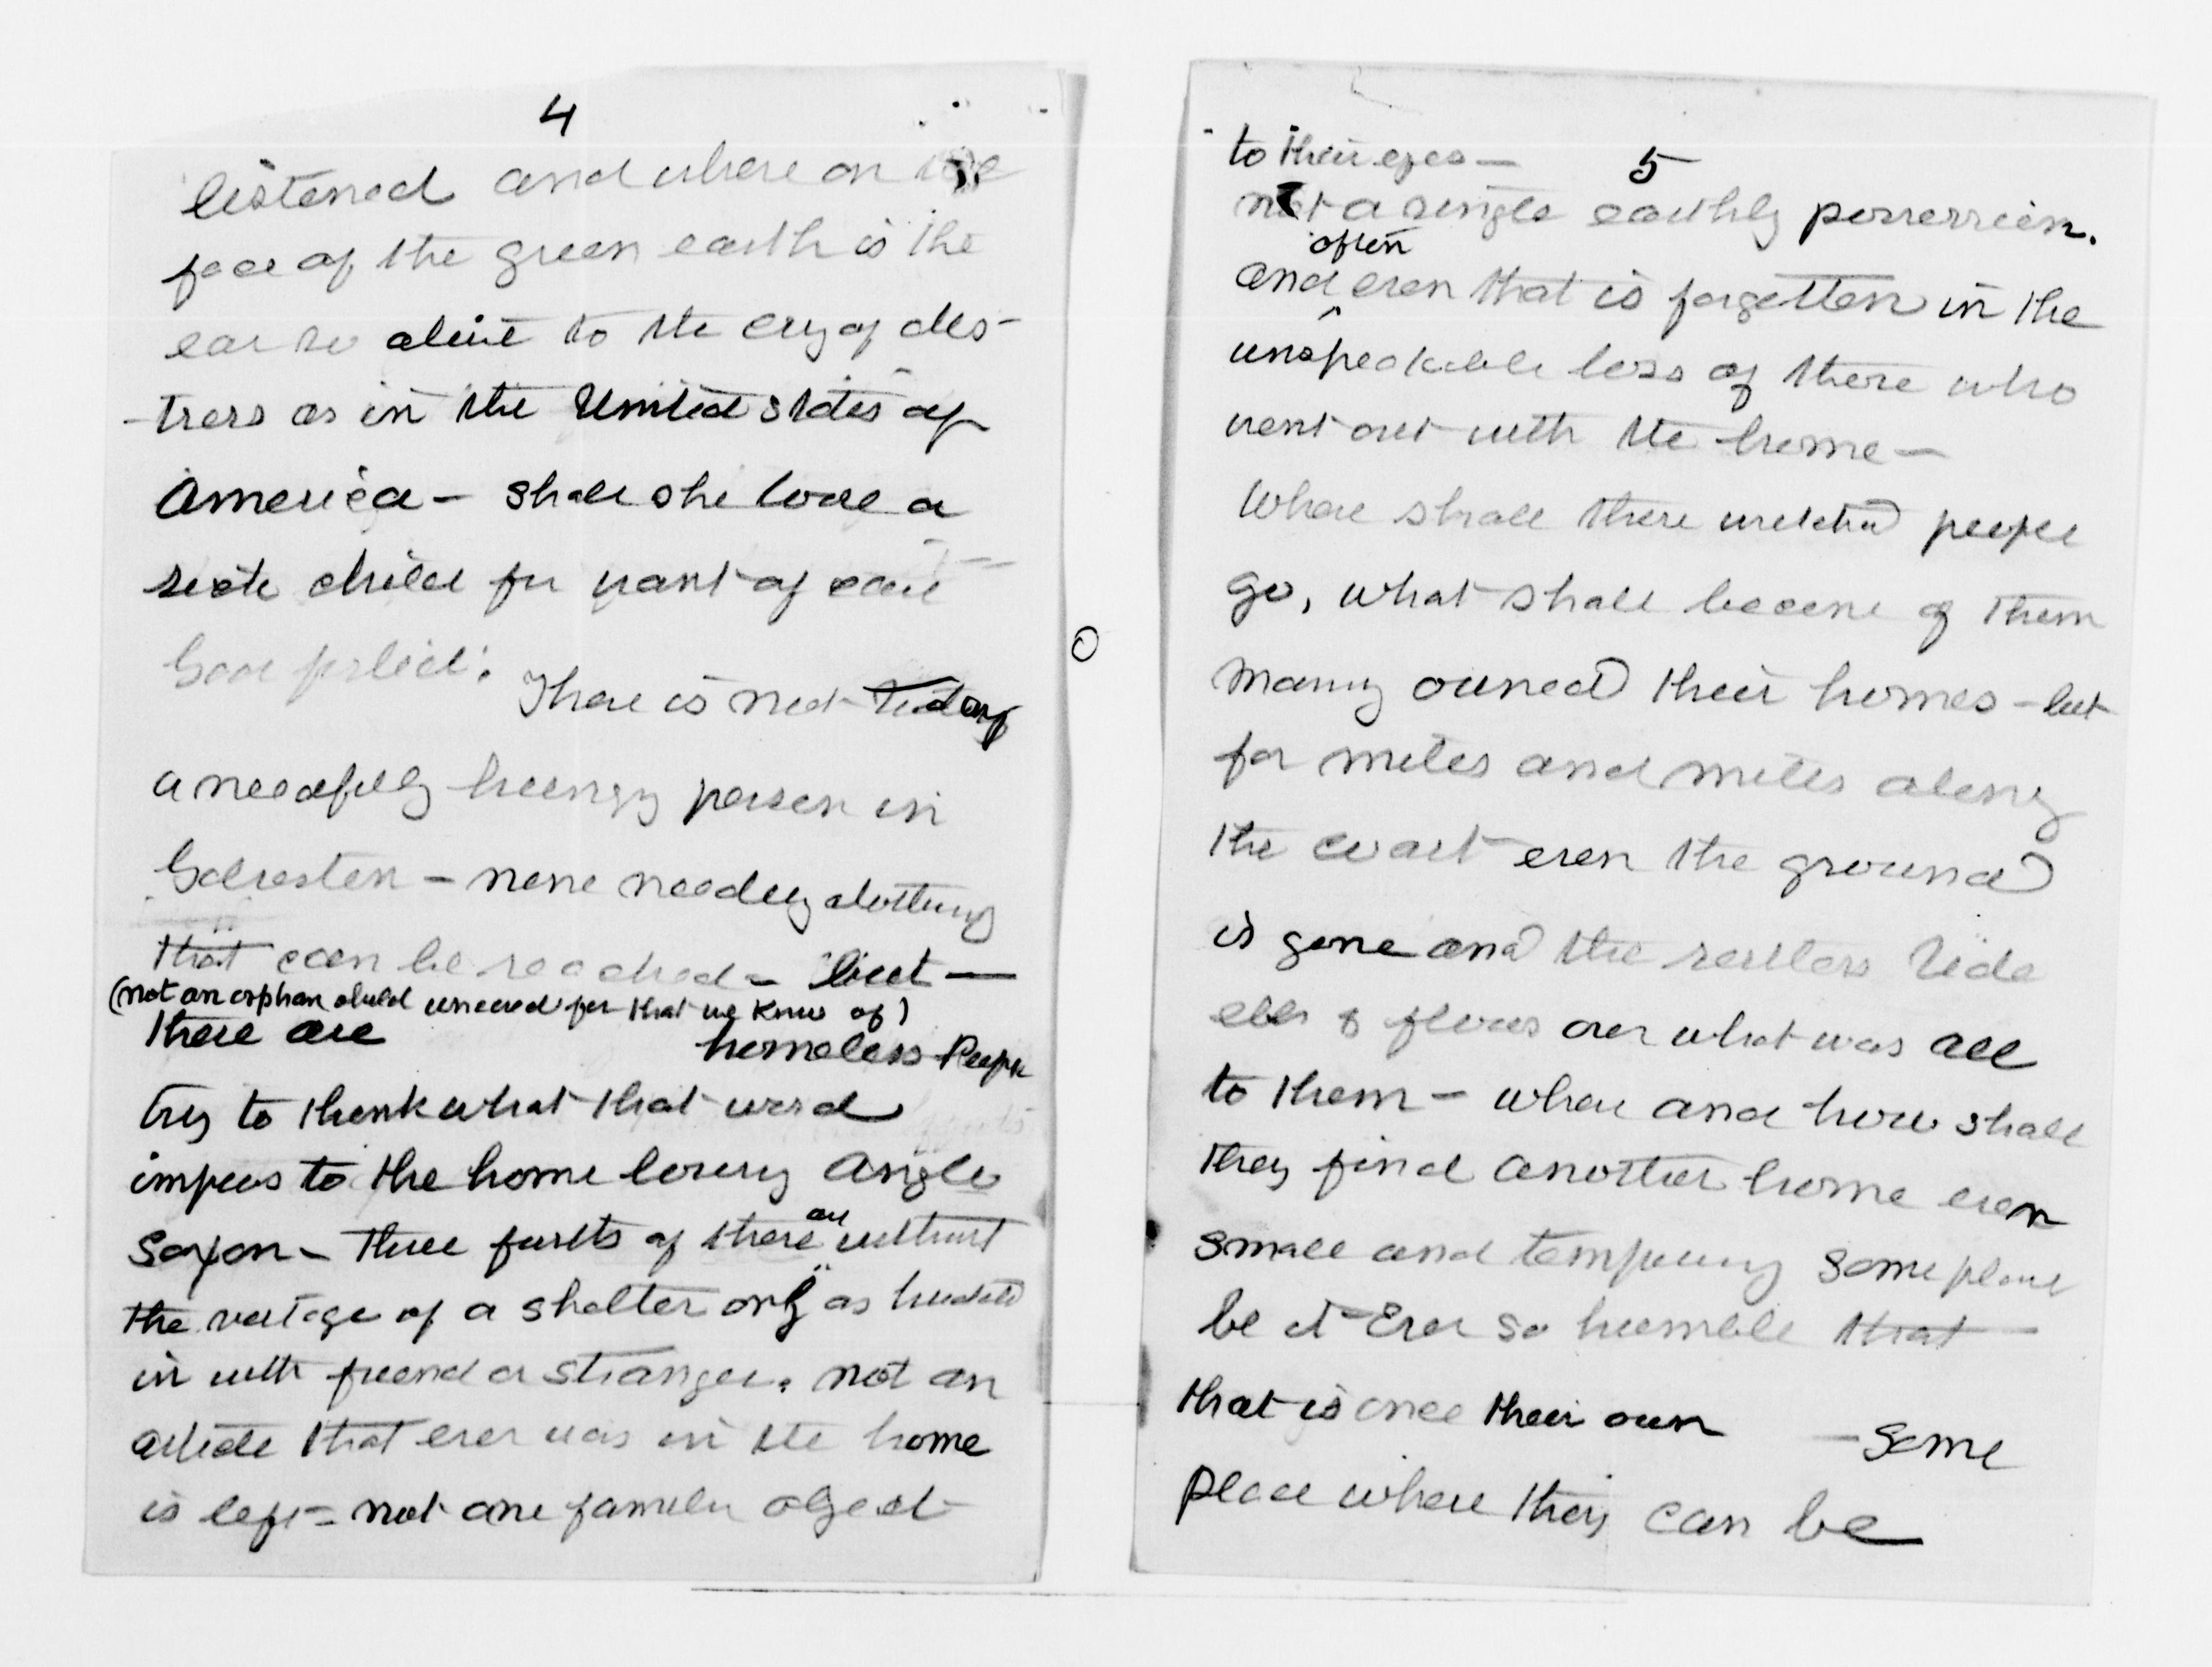 4
listened and where on the
face of the green earth is the
ear so alive to the cry of dis-
-tress as in the United States of
America - shall she lose a
sick child for want of care
God forbid.
There is not today
a needfully hungry person in
Galveston - none needing clothing
that can be reached - but -
(not an orphan child uncared for that we know of)
there are homeless People
try to think what that word
implies to the home loving Anglo
Saxon - three fourths of these are without
the vestage of a shelter only as huddled
in with friend or stranger. not an
article that ever was in the home
is left - not one familiar object
5
to their eyes -
not a single earthly possession.
often
and ^ even that is forgotten in the
unspeakable loss of those who
went out with the home -
Where shall these wretched people
go, what shall become of them
Many owned their homes - but
for miles and miles along
the coast even the ground
is gone and the restless tide
ebbs & flows over what was all
to them - where and how shall
they find another home even
small and temporary some place
be it Ever so humble that
that is once their own - Some
place where they can be